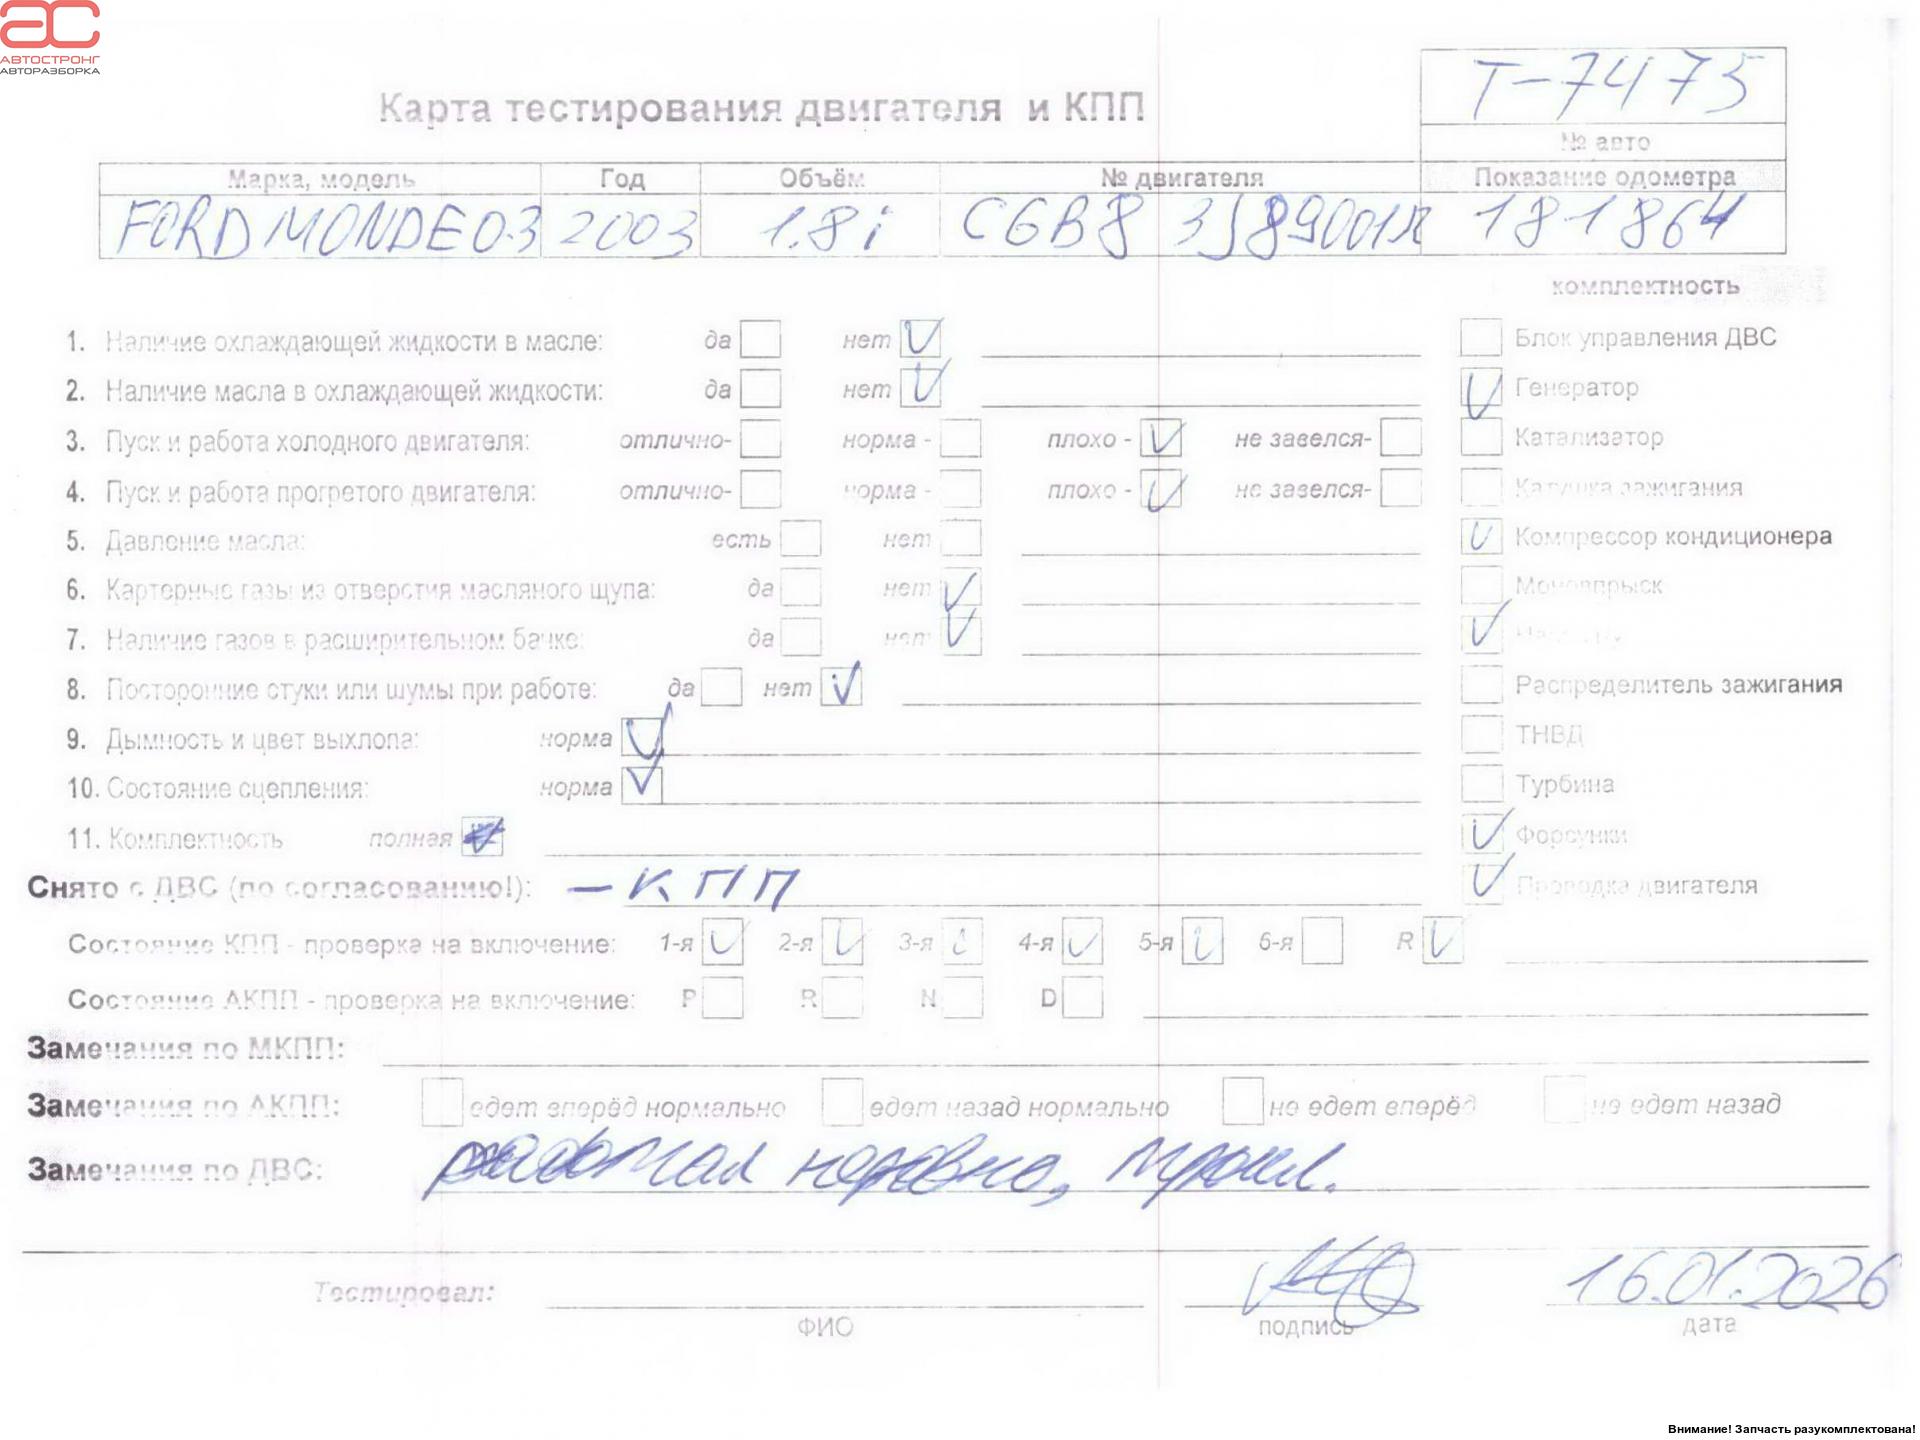 АВТОСТРОНГ
АВТОРАЗБОРКА
Т-7475
Карта тестирования двигателя и КПП
№ авто
Марка, модель Год Объём № двигателя Показание одометра
FORD MONDEO 3 2003 1.8i CGBB 181864
комплектность
1. Наличие охлаждающей жидкости в масле: да нет Блок управления ДВС
2. Наличие масла в охлаждающей жидкости: да нет Генератор
3. Пуск и работа холодного двигателя: отлично- норма - плохо - не завелся- Катализатор
4. Пуск и работа прогретого двигателя: отлично- норма - плохо - не завелся- Катушка зажигания
5. Давление масла: есть нет Компрессор кондиционера
6. Картерные газы из отверстия масляного щупа: да нет Моновпрыск
7. Наличие газов в расширительном бачке: да нет
8. Посторонние стуки или шумы при работе: да нет Распределитель зажигания
9. Дымность и цвет выхлопа: норма ТНВД
10. Состояние сцепления: норма Турбина
11. Комплектность полная Форсунки
Снято с ДВС (по согласованию!): - КПП Проводка двигателя
Состояние КПП - проверка на включение: 1-я 2-я 3-я 4-я 5-я 6-я R
Состояние АКПП - проверка на включение: P R N D
Замечания по МКПП:
Замечания по АКПП: едет вперёд нормально едет назад нормально не едет вперёд не едет назад
Замечания по ДВС: работал неровно, троил.
16.01.2026
Тестировал:
ФИО подпись дата
Внимание! Запчасть разукомплектована!